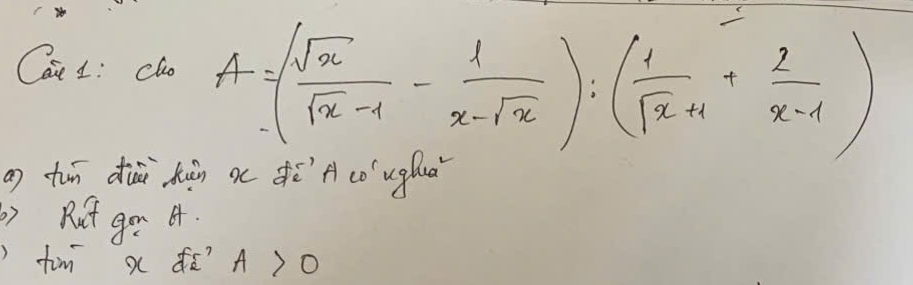 Câu 1: cho A = (√x / (√x - 1) - 1 / (x - √x)) : (1 / (√x + 1) + 2 / (x - 1))
a) tìm điều kiện x để A có nghĩa
b) Rút gọn A.
) tìm x để A > 0